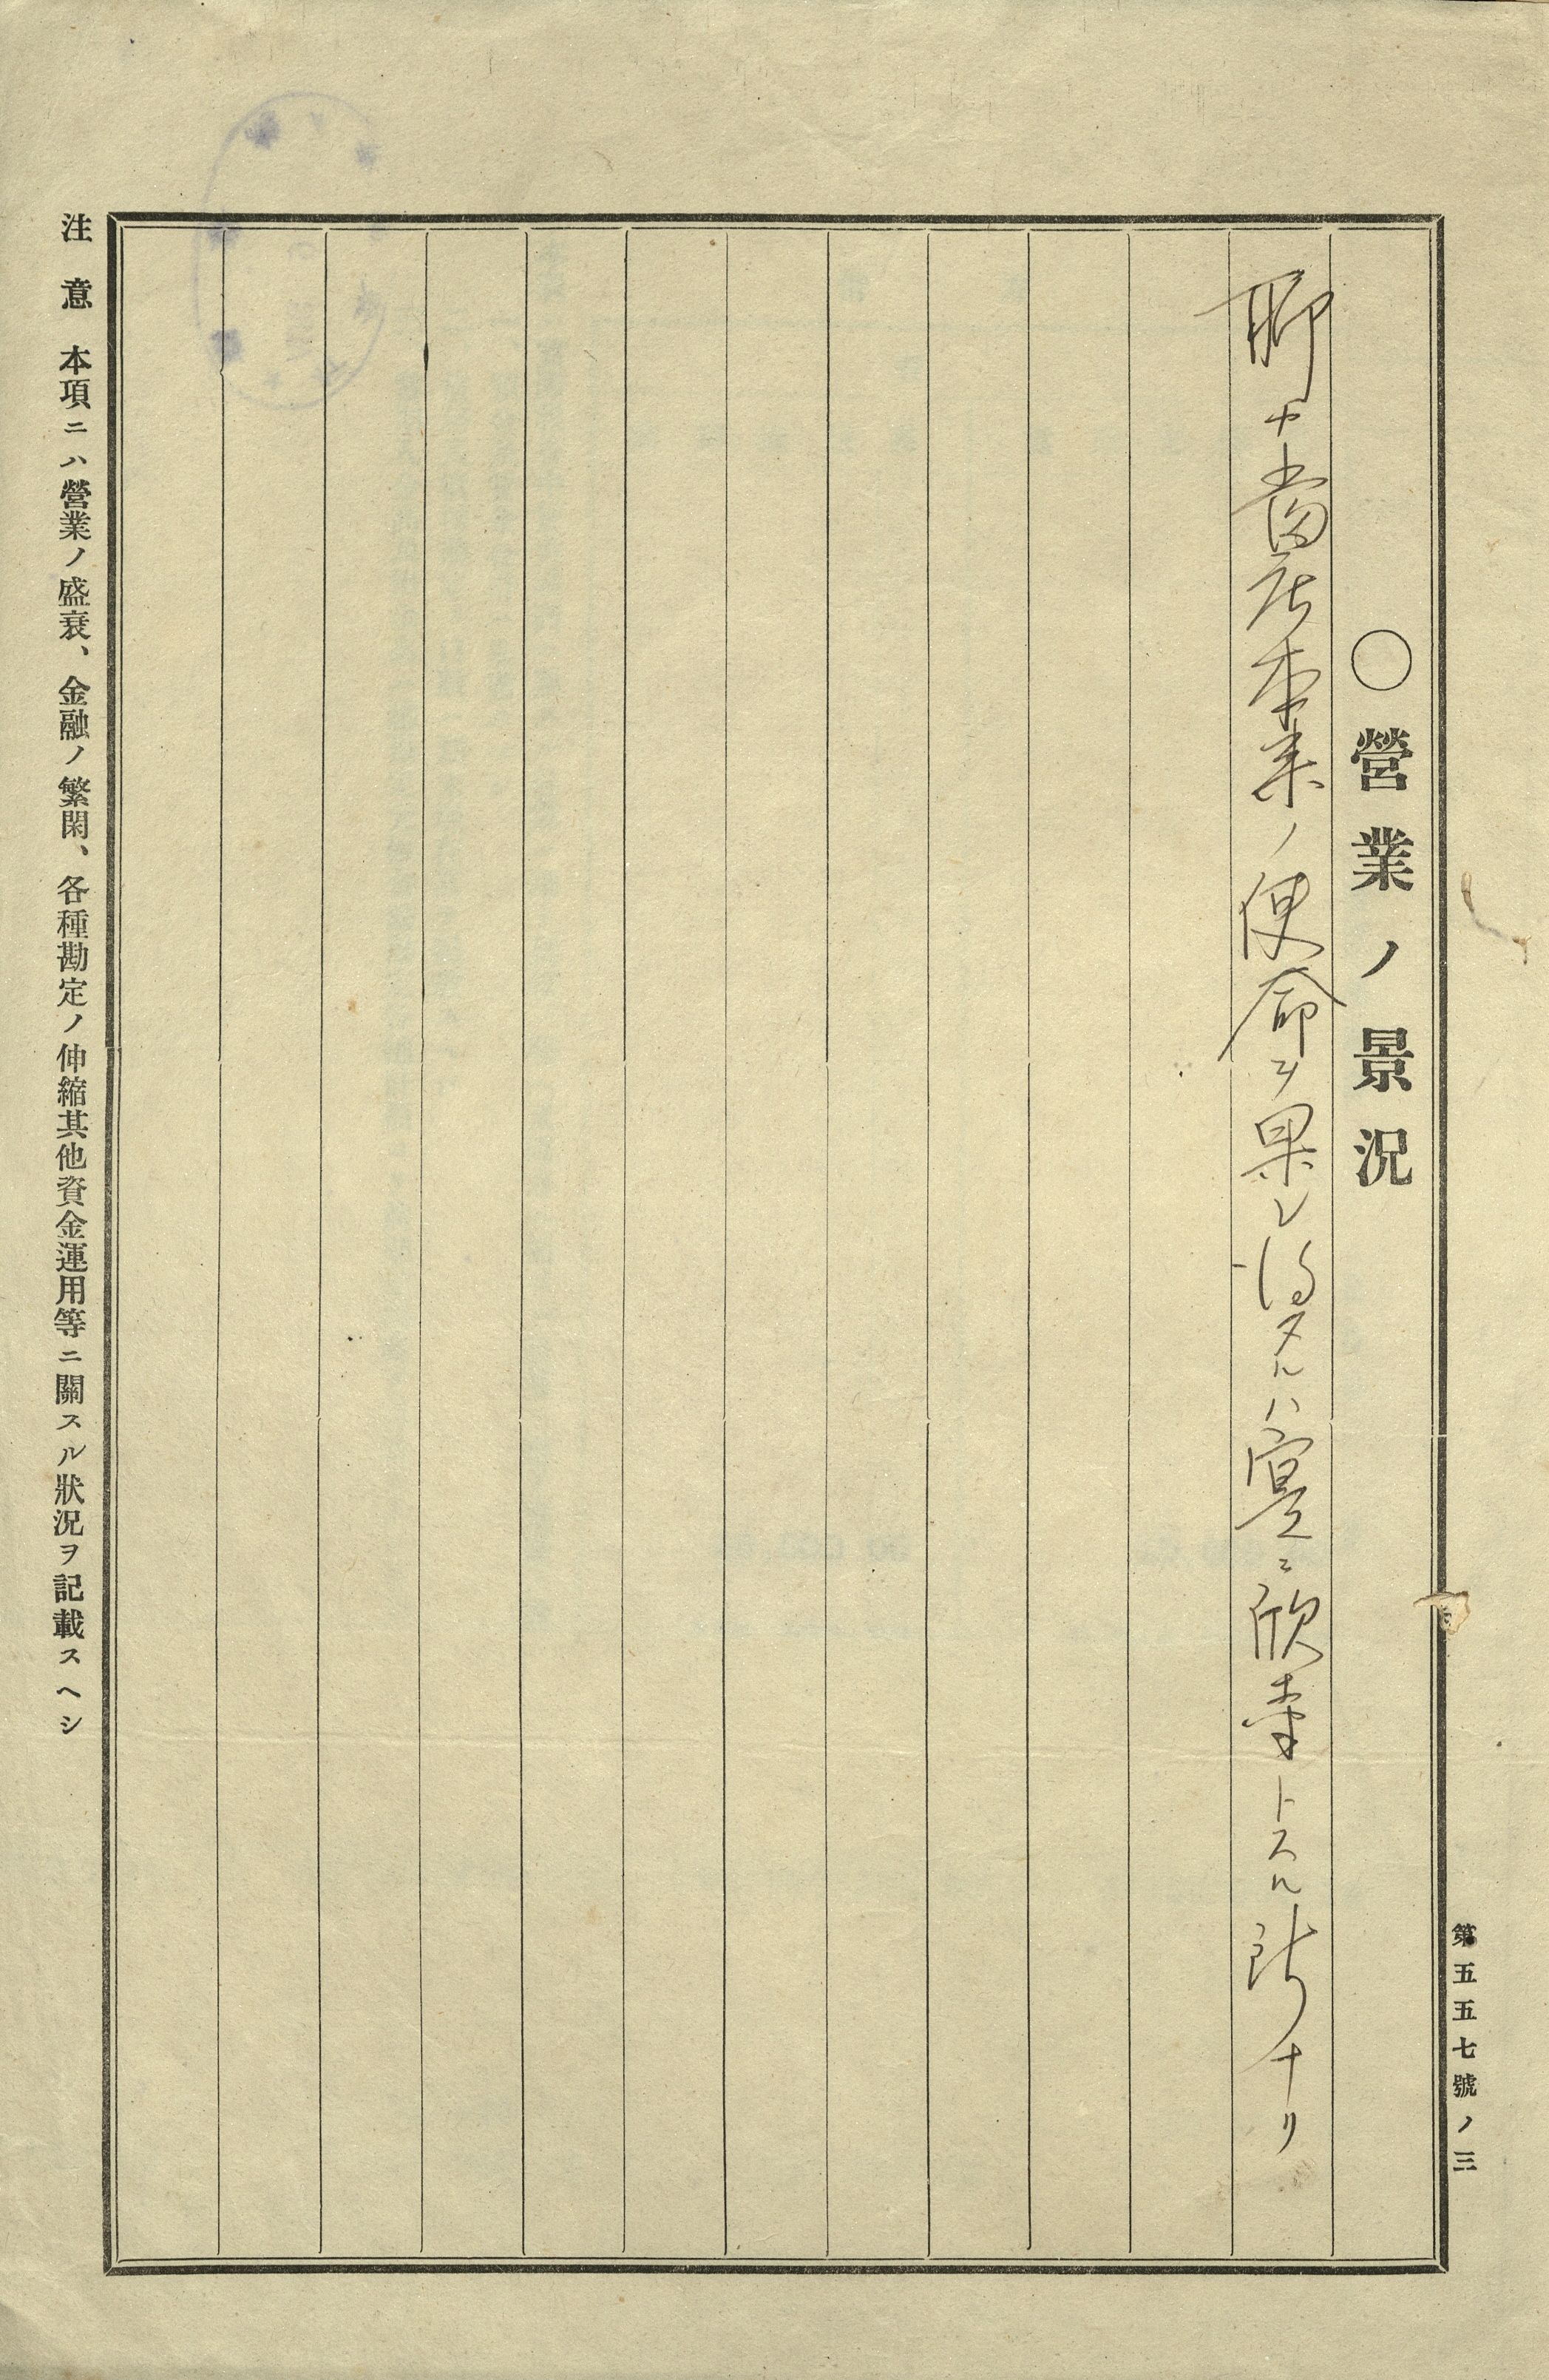 第五五七號ノ三
○營業ノ景況
聊カ當店本業ノ使命ヲ果シ得タルハ寔ニ欣幸トスル所ナリ
注意 本項ニハ營業ノ盛衰、金融ノ繁閑、各種勘定ノ伸縮其他資金運用等ニ關スル狀況ヲ記載スヘシ